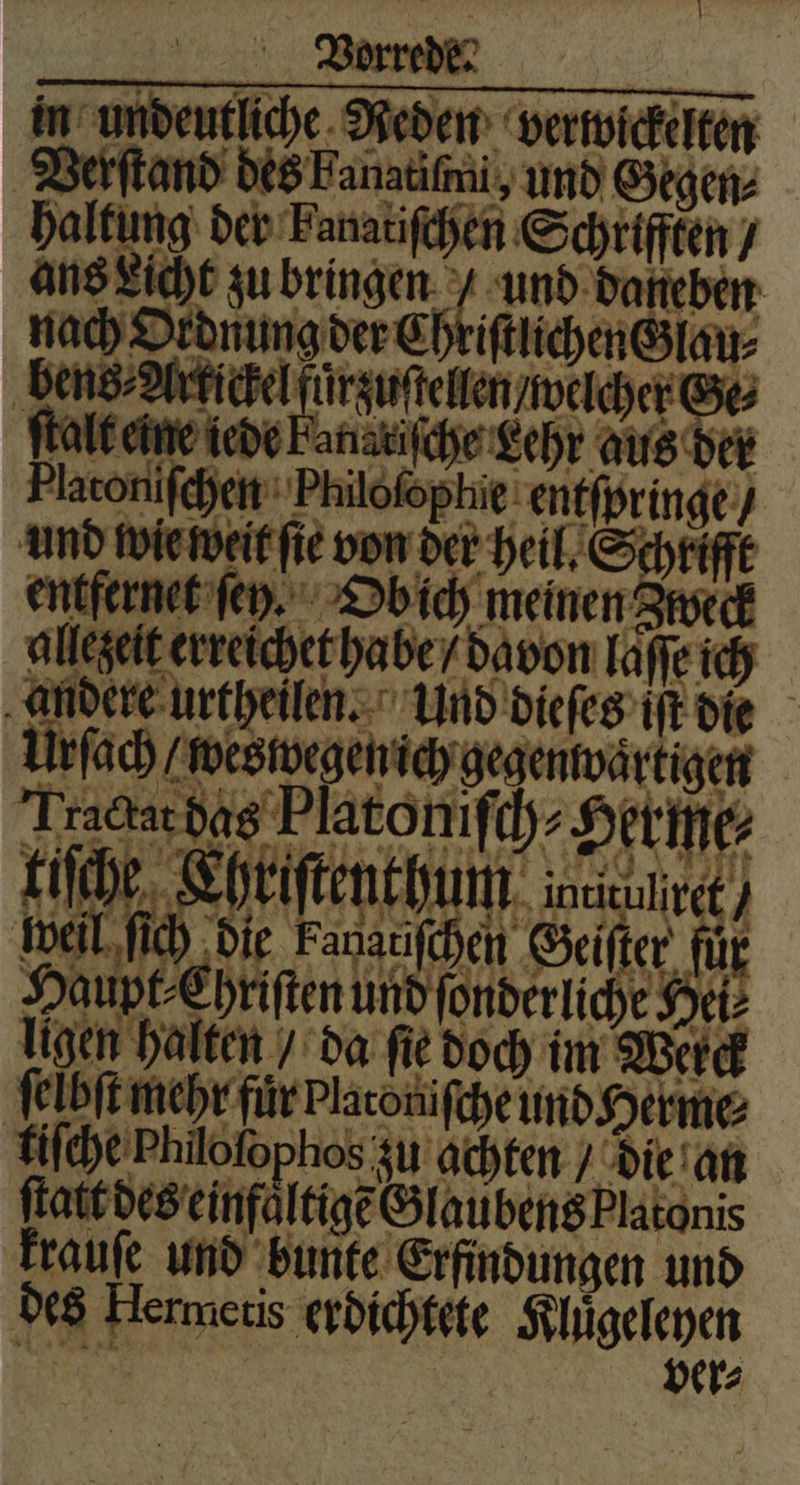 Vorrede.
in undeutliche Reden verwickelten
Verſtand des Fanatiſmi, und Gegen⸗
haltung der Fanatiſchen Schrifften /
ans Licht zu bringen / und daneben
nach Ordnung der Chriſtlichen Glau⸗
bens⸗Artickel fuͤrzuſtellen / welcher Ge⸗
ſtalt eine iede Fanatiſche Lehr aus der
Platoniſchen Philoſophie entſpringe /
und wie weit ſie von der heil. Schrifft
entfernet ſey. Ob ich meinen Zweck
allezeit erreichet habe / davon laſſe ich
andere urtheilen. Und dieſes iſt die
Urſach / weswegen ich gegenwaͤrtigen
Tractat das Platoniſch⸗Herme⸗
tiſche Chriſtenthum intituliret /
weil ſich die Fanatiſchen Geiſter fuͤr
Haupt⸗Chriſten und ſonderliche Hei⸗
ligen halten / da ſie doch im Werck
ſelbſt mehr fuͤr Platoniſche und Herme⸗
tiſche Philoſophos zu achten / die an
ſtatt des einfaͤltigẽ Glaubens Platonis
krauſe und bunte Erfindungen und
des Hermetis erdichtete Kluͤgeleyen
ver⸗